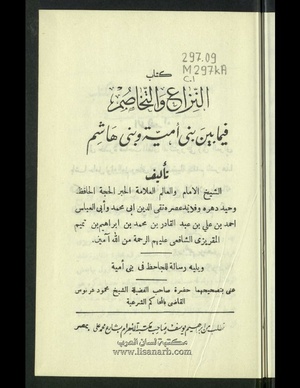 297.09
M297kA
C.1
كتاب
النزاع والتخاصم
فيما بين بنى أمية وبنى هاشم
تأليف
الشيخ الامام والعالم العلامة الحبر الحجة الحافظ
وحيد دهره وفريد عصره تقى الدين ابى محمد وأبى العباس
احمد بن على بن عبد القادر بن محمد بن ابراهيم بن تميم
المقريزى الشافعى عليهم الرحمة من الله آمين
ويليه رسالة للجاحظ فى بنى أمية
عنى بتصحيحهما حضرة صاحب الفضيلة الشيخ محمود عرنوس
القاضى بالمحاكم الشرعية
تطلب من ابراهيم يوسف صاحب مكتبة الأهرام بشارع محمد على بمصر
مكتبة لسان العرب
www.lisanarb.com